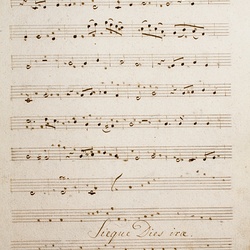 Sieque Dies irae.